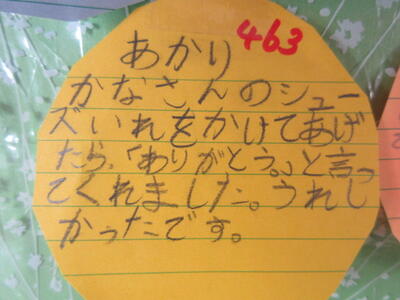 463
あかり
かなさんのシュー
ズいれをかけてあげ
たら、「ありがとう。」と言っ
てくれました。うれし
かったです。